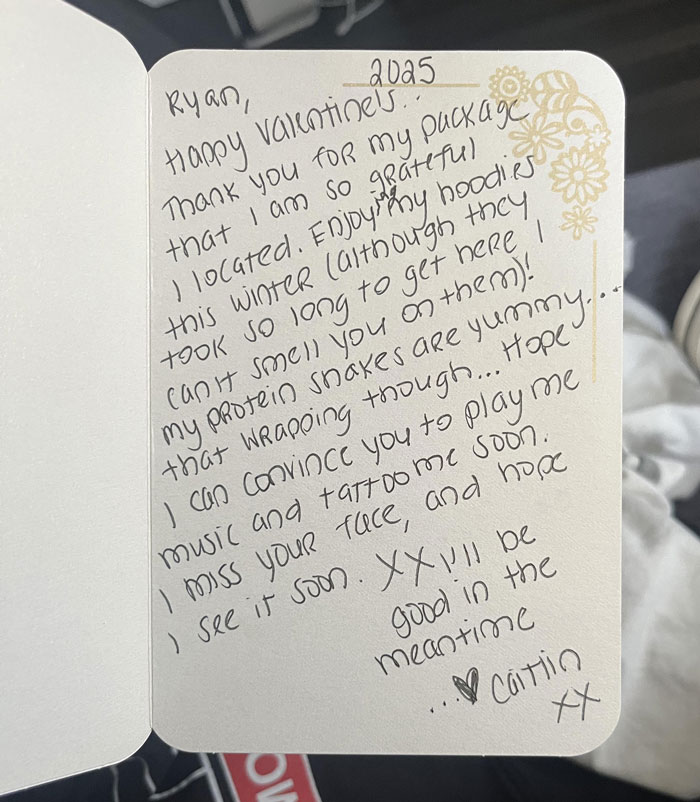 2025
Ryan,
Happy Valentine's..
Thank you for my package
that I am so grateful
I located. Enjoying my hoodies
this winter (although they
took so long to get here I
can't smell you on them)!
my protein shakes are yummy...
that wrapping though... Hope
I can convince you to play me
music and tattoo me soon.
I miss your face, and hope
I see it soon. XX I'll be
good in the
meantime
...♥ Caitlin
XX
OW